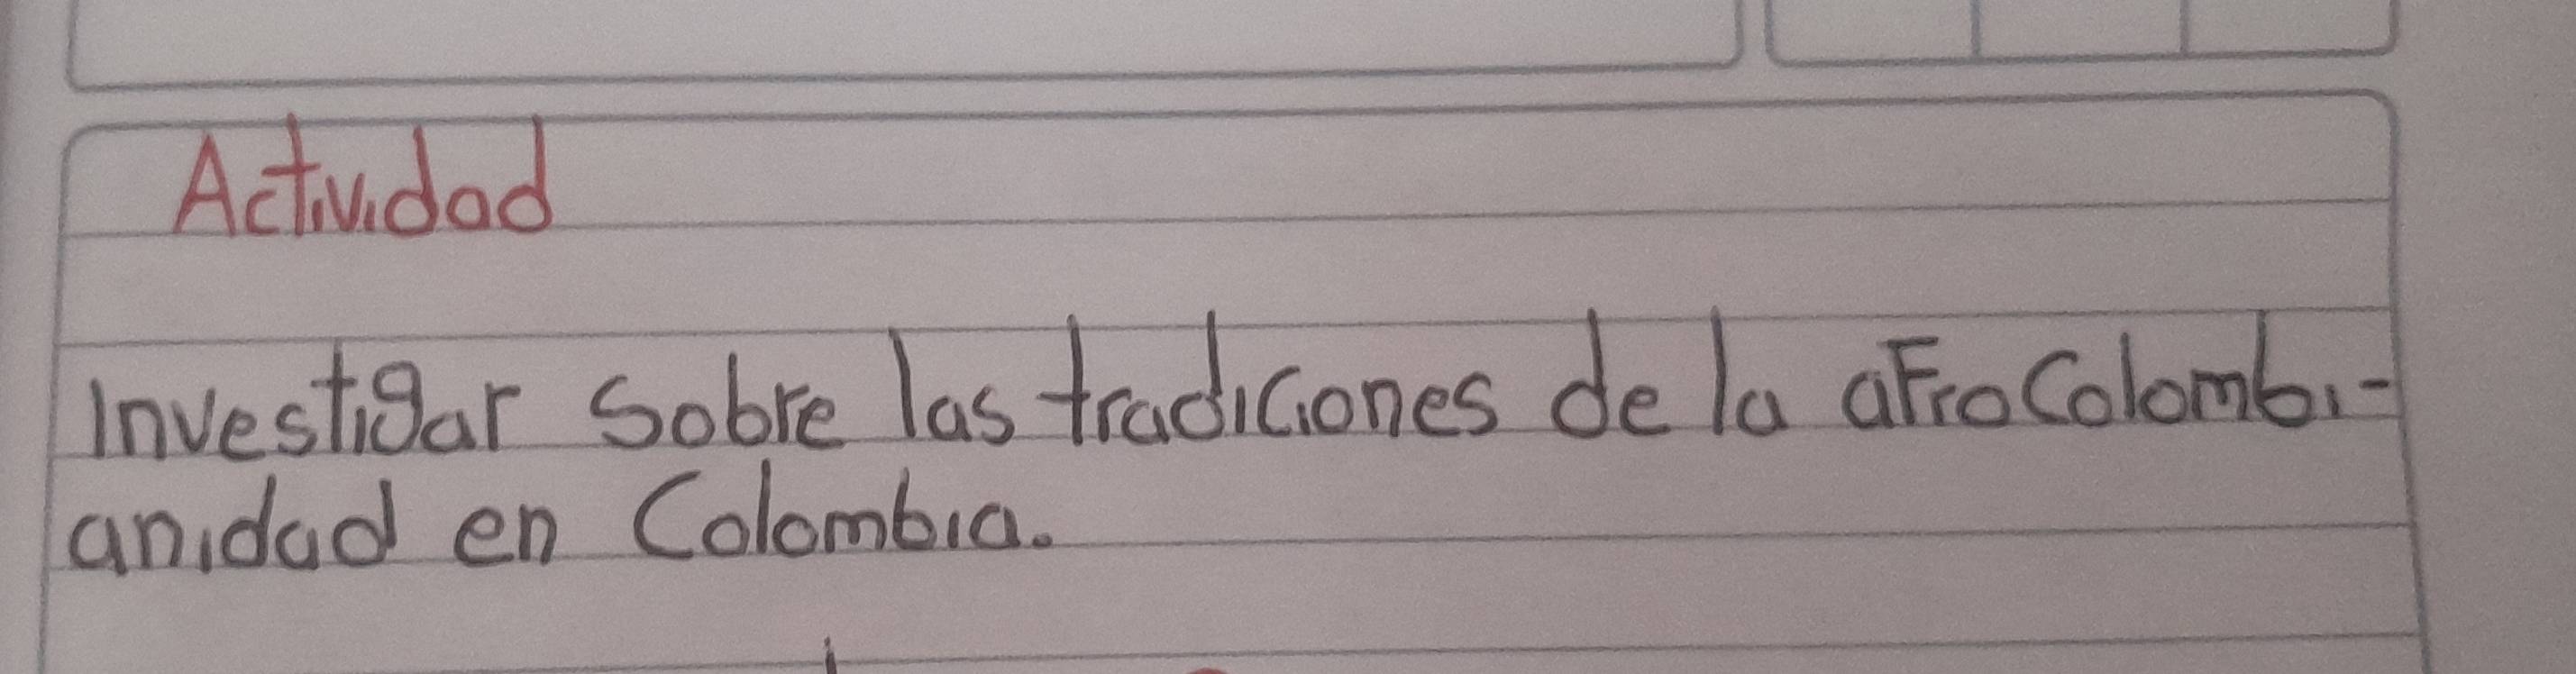 Actividad
Investigar sobre las tradiciones de la afrocolombi-
anidad en Colombia.